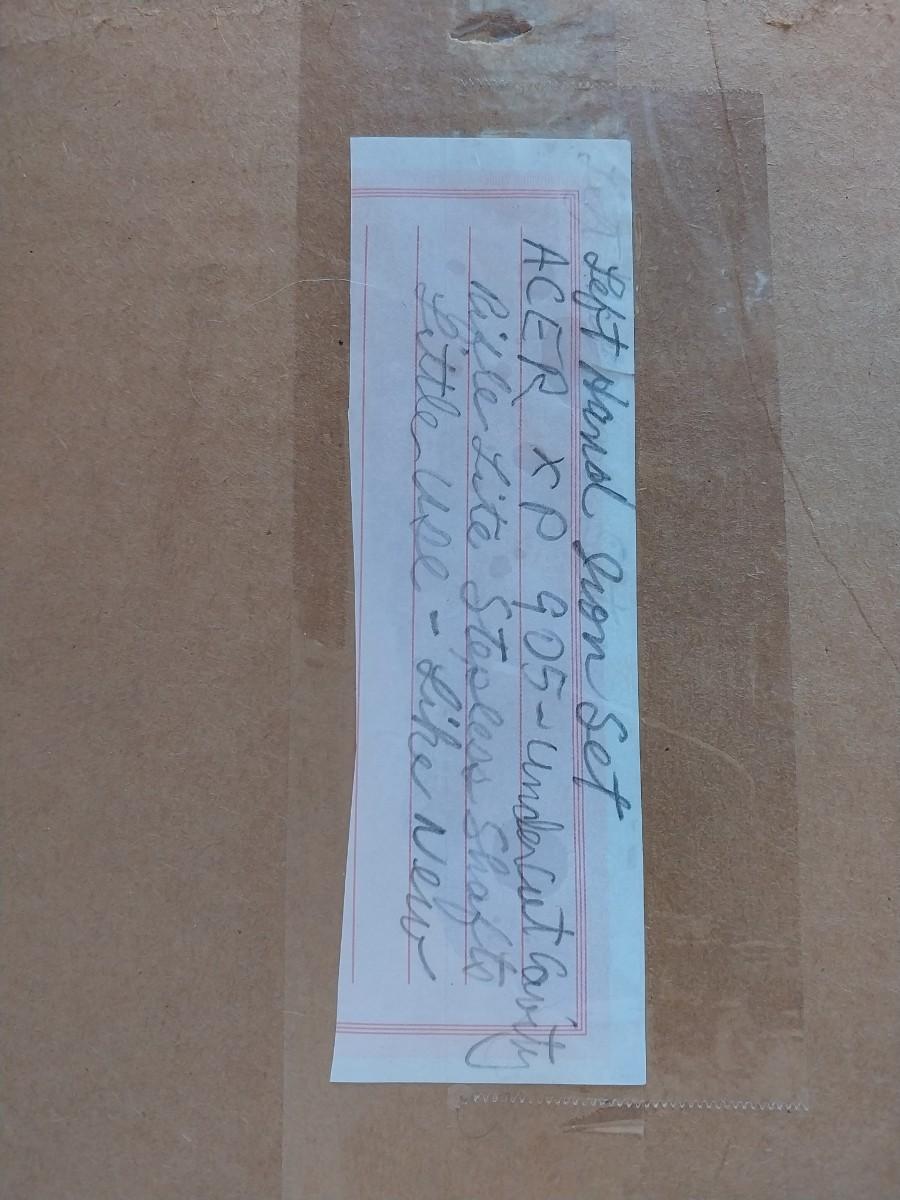 Left Hand Iron Set
ACER XP 905-Undercut Cavity
Rifle Lite Stepless Shafts
Little Use - Like New